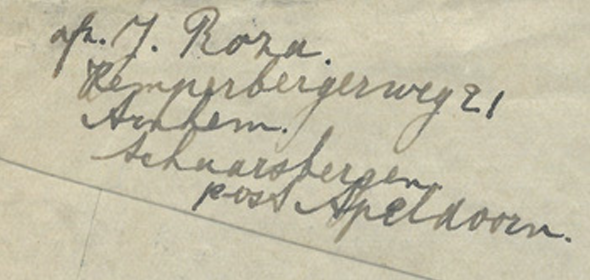 afz. J. Roza.
Kemperbergerweg 21
Arnhem.
Schaarsbergen
post Apeldoorn.